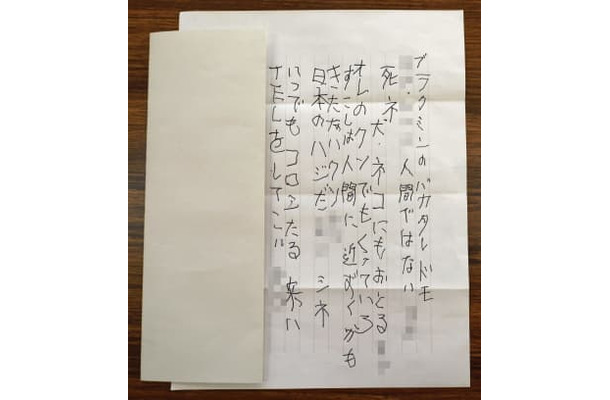 ブラクミンのバカタレドモ
人間ではない
死ネ 犬・ネコにもおとる
オレのクソでもくっていろ
すこしは人間に近ずくかも
きたないクソ
日本のハジだ シネ
いつでもコロシたる 来い
をしてこい